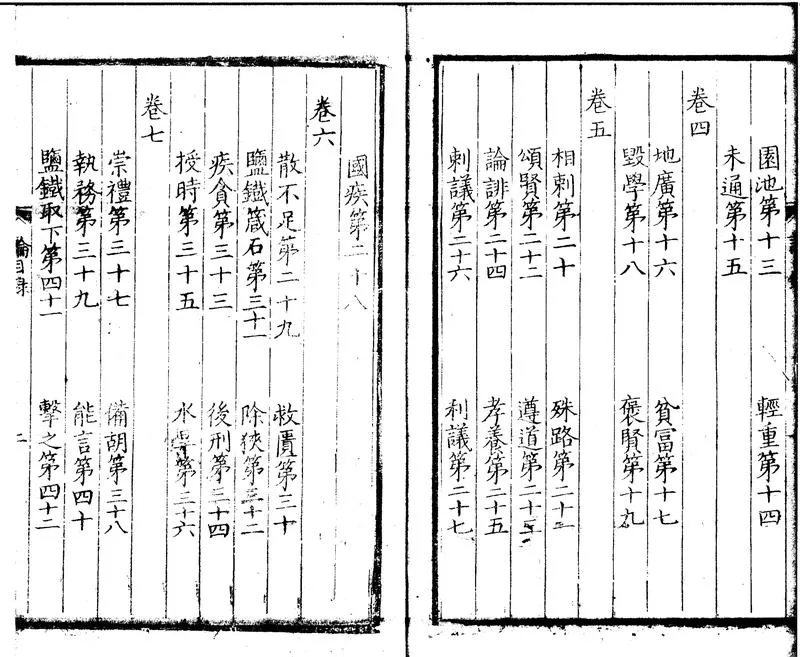 園池第十三 輕重第十四
未通第十五
卷四
地廣第十六 貧富第十七
毀學第十八 褒賢第十九
卷五
相刺第二十 殊路第二十一
頌賢第二十二 遵道第二十三
論誹第二十四 孝養第二十五
刺議第二十六 利議第二十七
國疾第二十八
卷六
散不足第二十九 救匱第三十
鹽鐵箴石第三十一 除狹第三十二
疾貪第三十三 後刑第三十四
授時第三十五 水旱第三十六
卷七
崇禮第三十七 備胡第三十八
執務第三十九 能言第四十
鹽鐵取下第四十一 擊之第四十二
論目錄 二